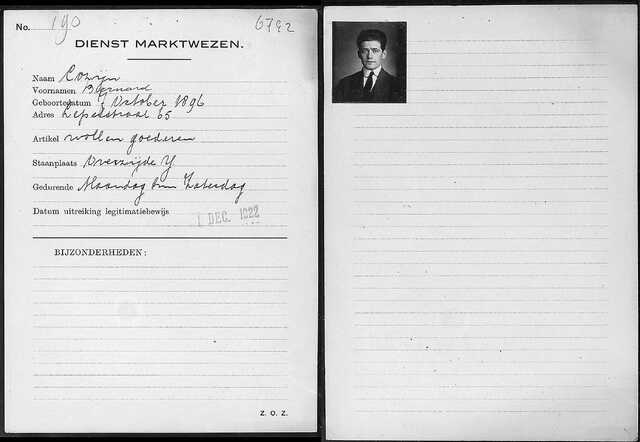 No. 190 6792
DIENST MARKTWEZEN.
Naam Cozijn
Voornamen Bernard
Geboortedatum October 1896
Adres Lepelstraat 65
Artikel wollen goederen
Staanplaats Overzijde Y
Gedurende Maandag t/m Zaterdag
Datum uitreiking legitimatiebewijs 1 DEC. 1922
BIJZONDERHEDEN:
Z. O. Z.